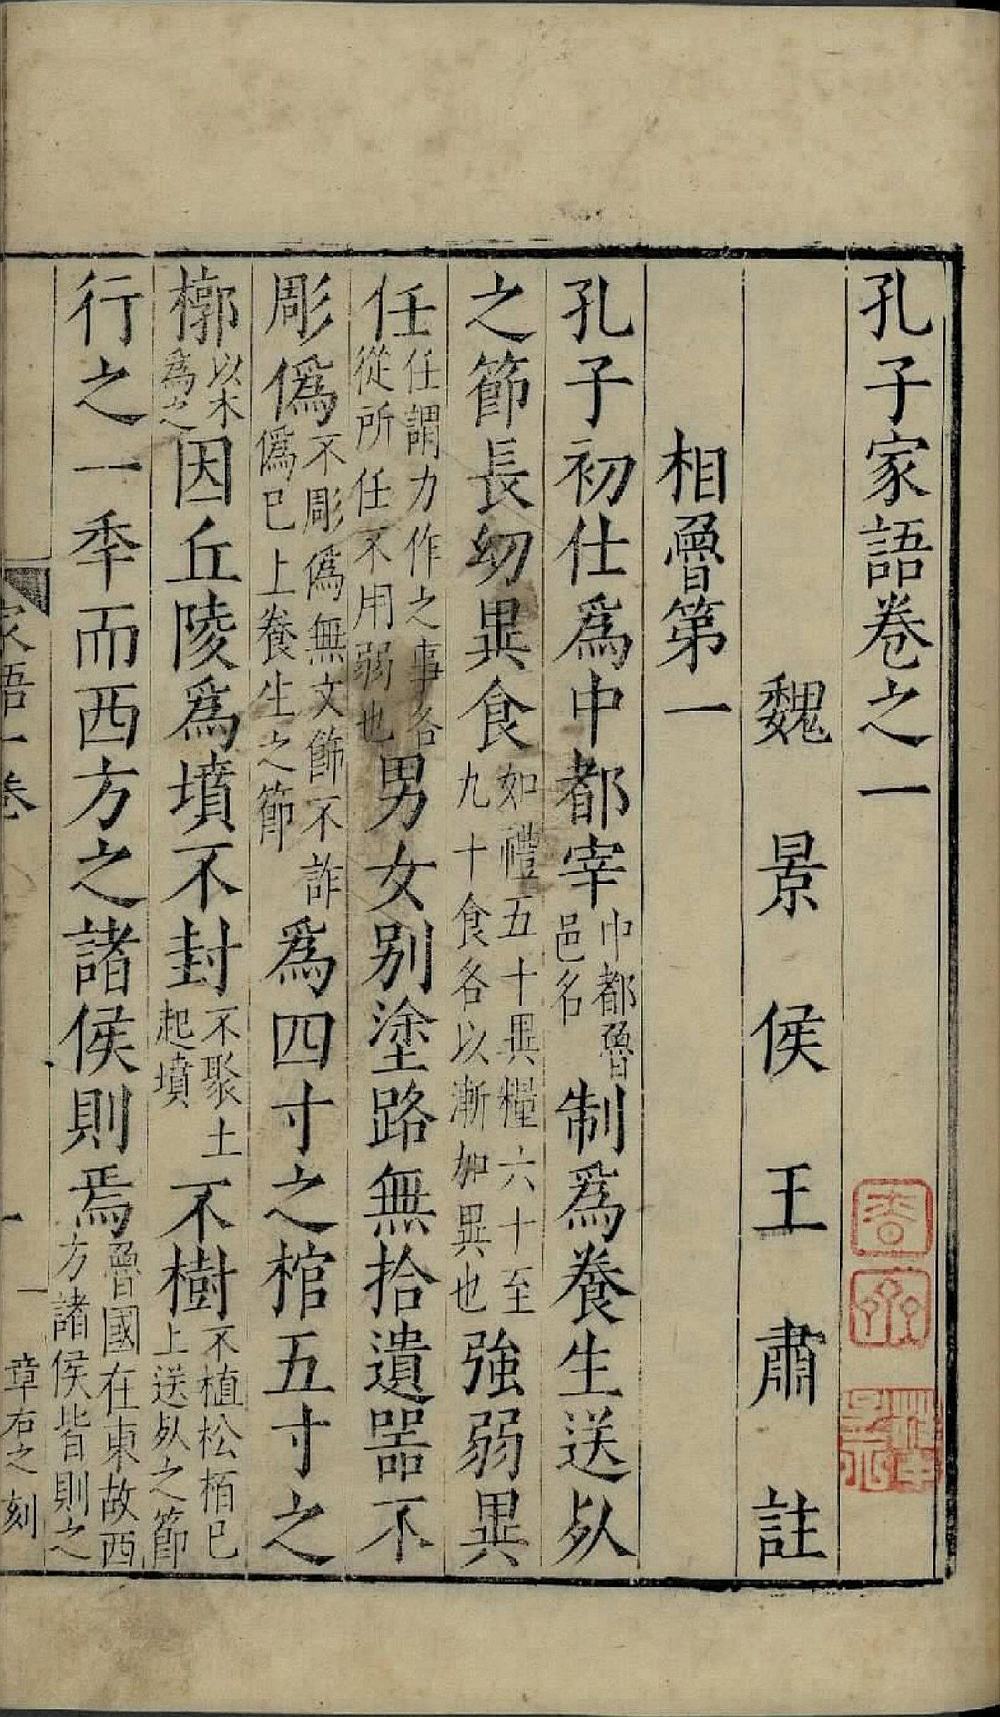 孔子家語卷之一
魏景侯王肅註
相魯第一
孔子初仕為中都宰中都魯邑名制為養生送死
之節長幼異食如禮五十異糧六十至九十食各以漸加異也強弱異
任任謂力作之事各從所任不用弱也男女別塗路無拾遺器不
彫偽不彫偽無文飾不詐偽已上養生之節為四寸之棺五寸之
槨以木為之因丘陵為墳不封不聚土起墳不樹不植松栢已上送死之節
行之一年而西方之諸侯則焉魯國在東故西方諸侯皆則之
家語一卷
一
章右之刻